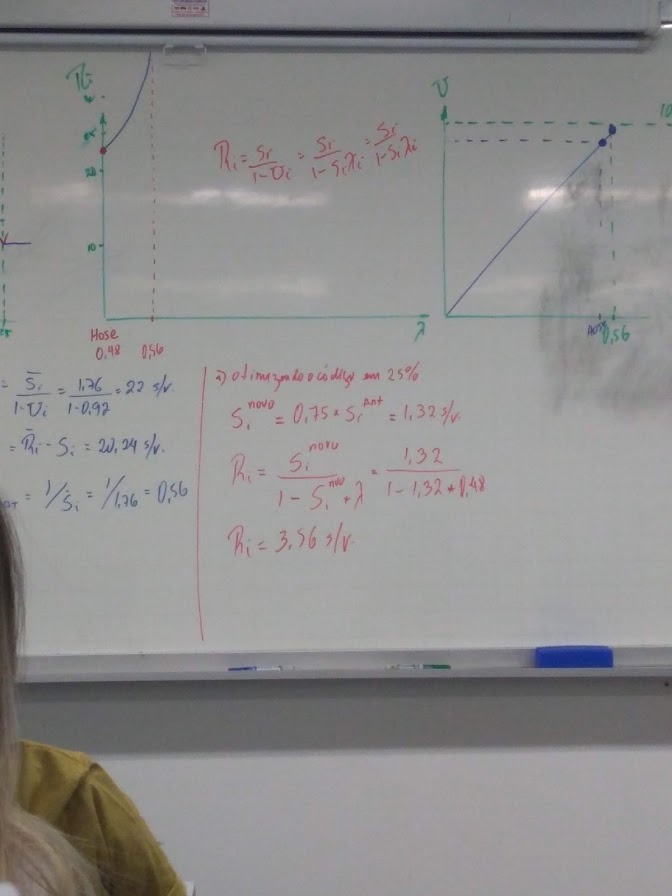 Ri
20
10
λ
Hose
0,48 0,56
Ri = Si/1-Ui = Si/1-Siλi = Si/1-Siλi
U
10
0,56
= Si/1-Ui = 1,76/1-0,92 = 22 s/v.
= Ri - Si = 20,24 s/v.
= 1/Si = 1/1,76 = 0,56
a) otimizando o código em 25%
Si novo = 0,75 * Si Ant = 1,32 s/v.
Ri = Si novo / 1 - Si novo * λ = 1,32 / 1 - 1,32 * 0,48
Ri = 3,56 s/v.